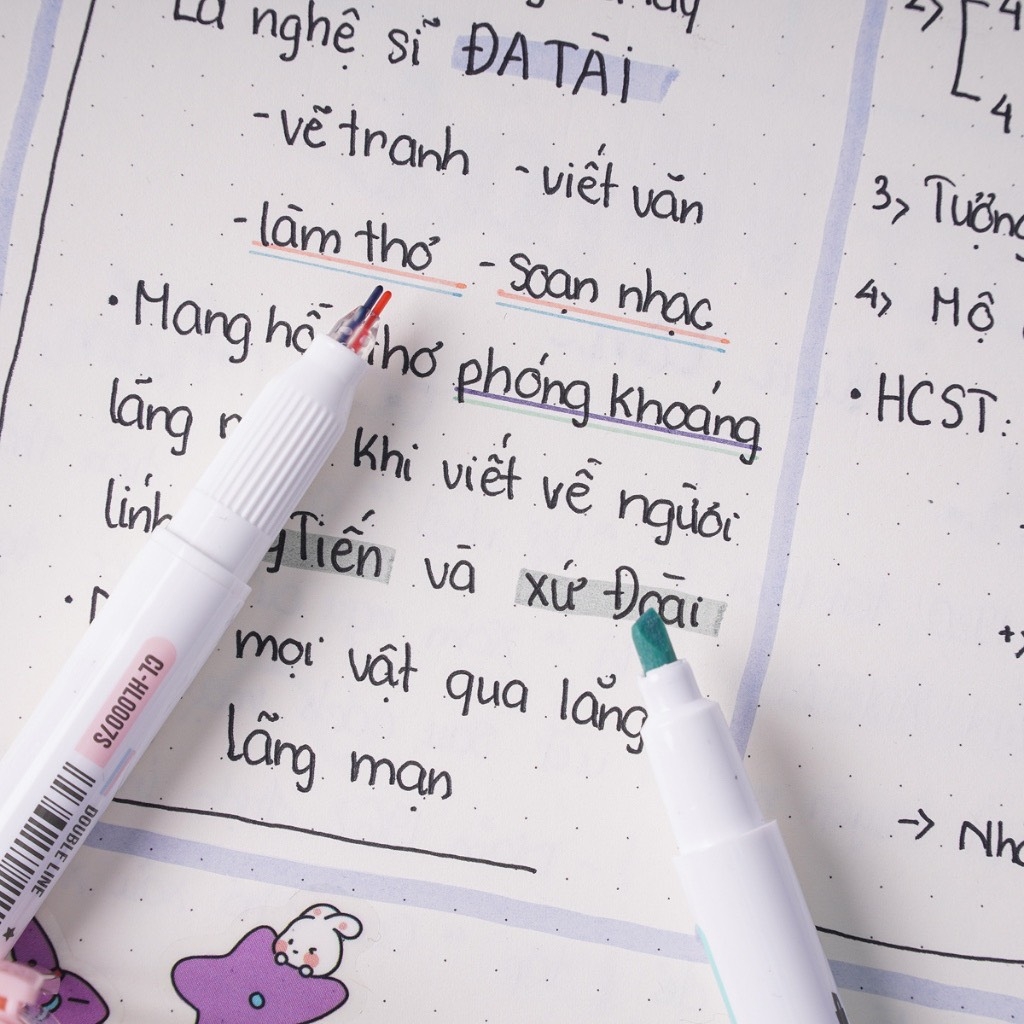 Là nghệ sĩ ĐA TÀI
- vẽ tranh - viết văn
- làm thơ - soạn nhạc
• Mang hồ thơ phóng khoáng
lãng khi viết về người
lính Tiến và xứ Đoài
mọi vật qua lăng
lãng mạn
4
4
3> Tưởng
4> Mộ
• HCST:
+>
→ Nh
CL-HL0007S
DOUBLE LINE